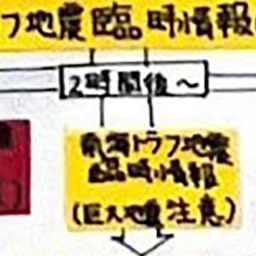 フ地震臨時情報
2時間後~
南海トラフ地震
臨時情報
(巨大地震注意)